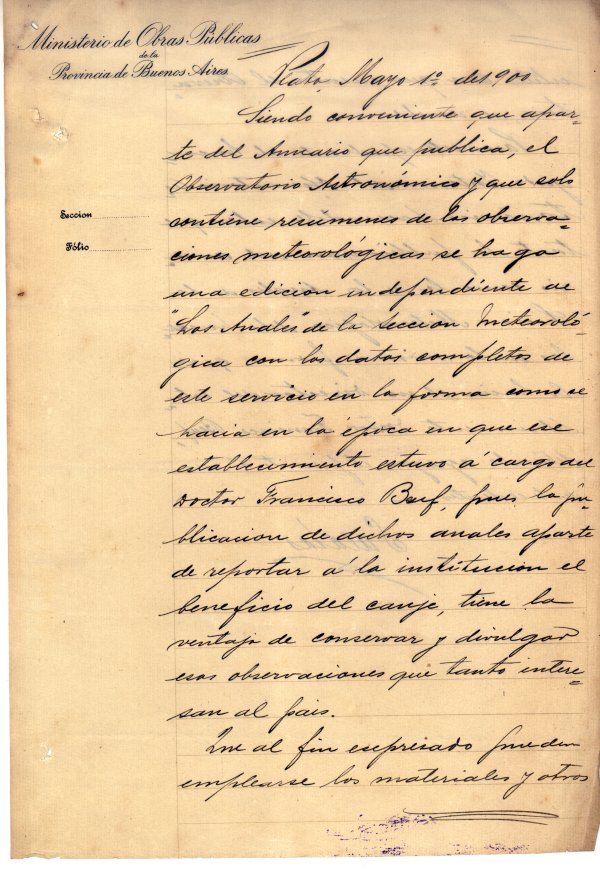 Ministerio de Obras Públicas
de la
Provincia de Buenos Aires
Plata, Mayo 1º de 1900
Siendo conveniente que apar-
te del Anuario que publica, el
Observatorio Astronómico y que solo
contiene resúmenes de las observa-
ciones meteorológicas se haga
una edicion independiente de
"Los Anales" de la Seccion Meteoroló-
gica con los datos completos de
este servicio en la forma como se
hacia en la época en que ese
establecimiento estuvo á cargo del
Doctor Francisco Beuf, pues la pu-
blicacion de dichos anales aparte
de reportar á la institucion el
beneficio del canje, tiene la
ventaja de conservar y divulgar
esas observaciones que tanto intere-
san al pais.
Que al fin esepresado pueden
emplearse los materiales y otros
Seccion
Fólio